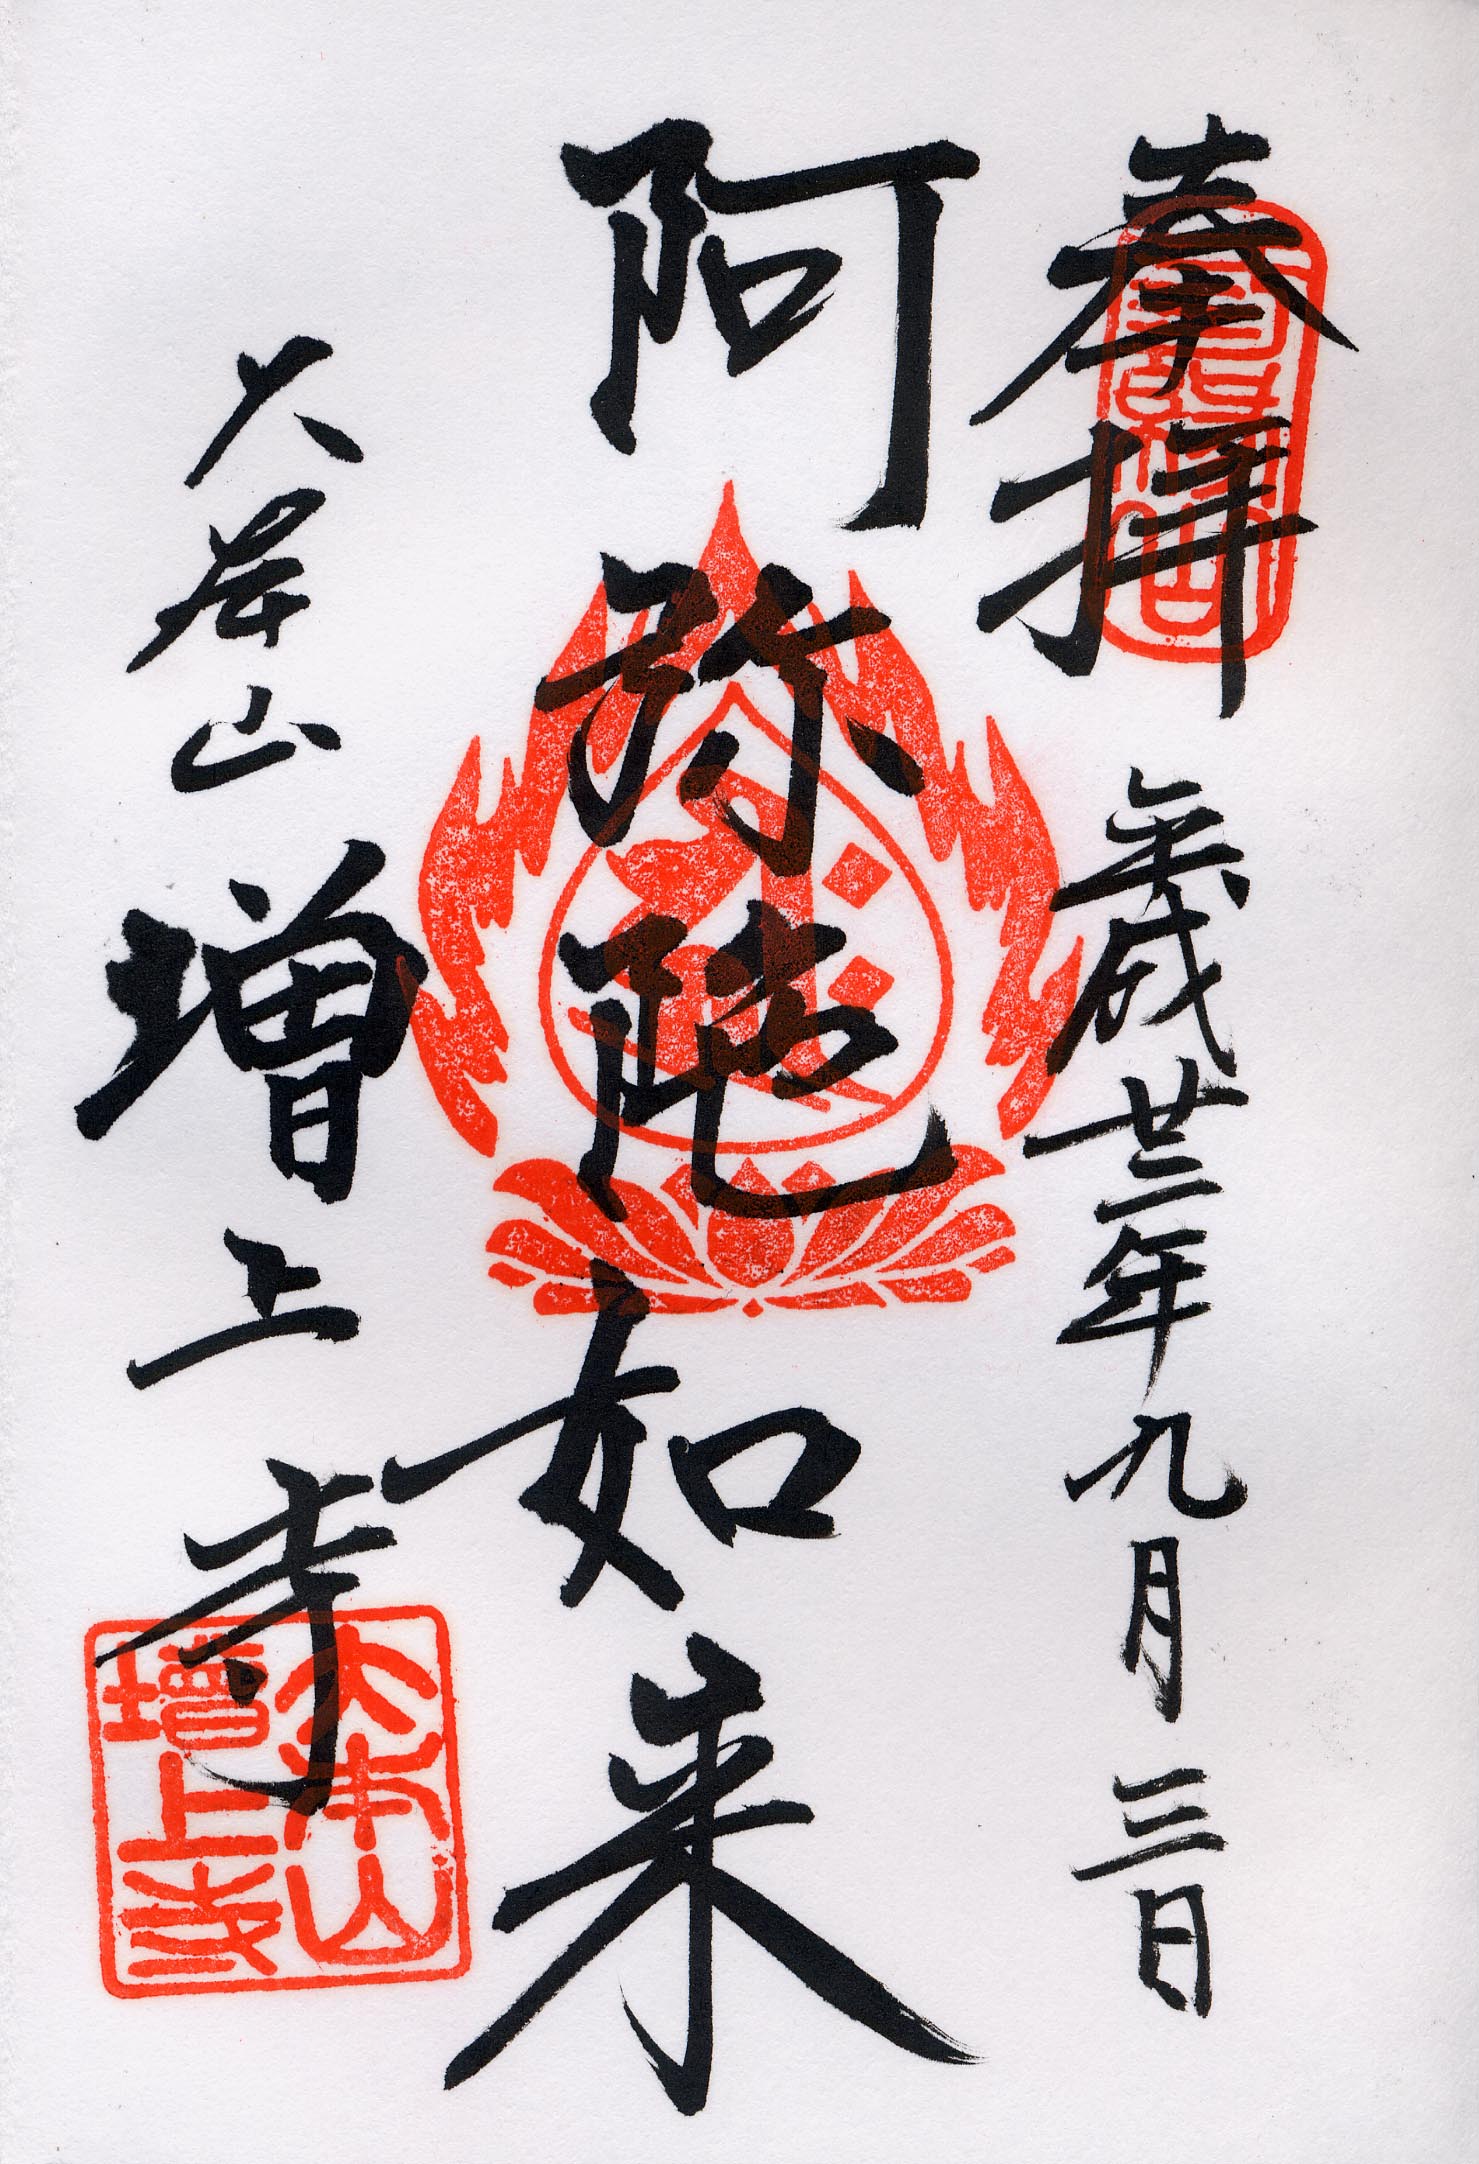 奉拝 平成廿三年九月三日
阿弥陀如来
大本山 増上寺
大本山
増上寺